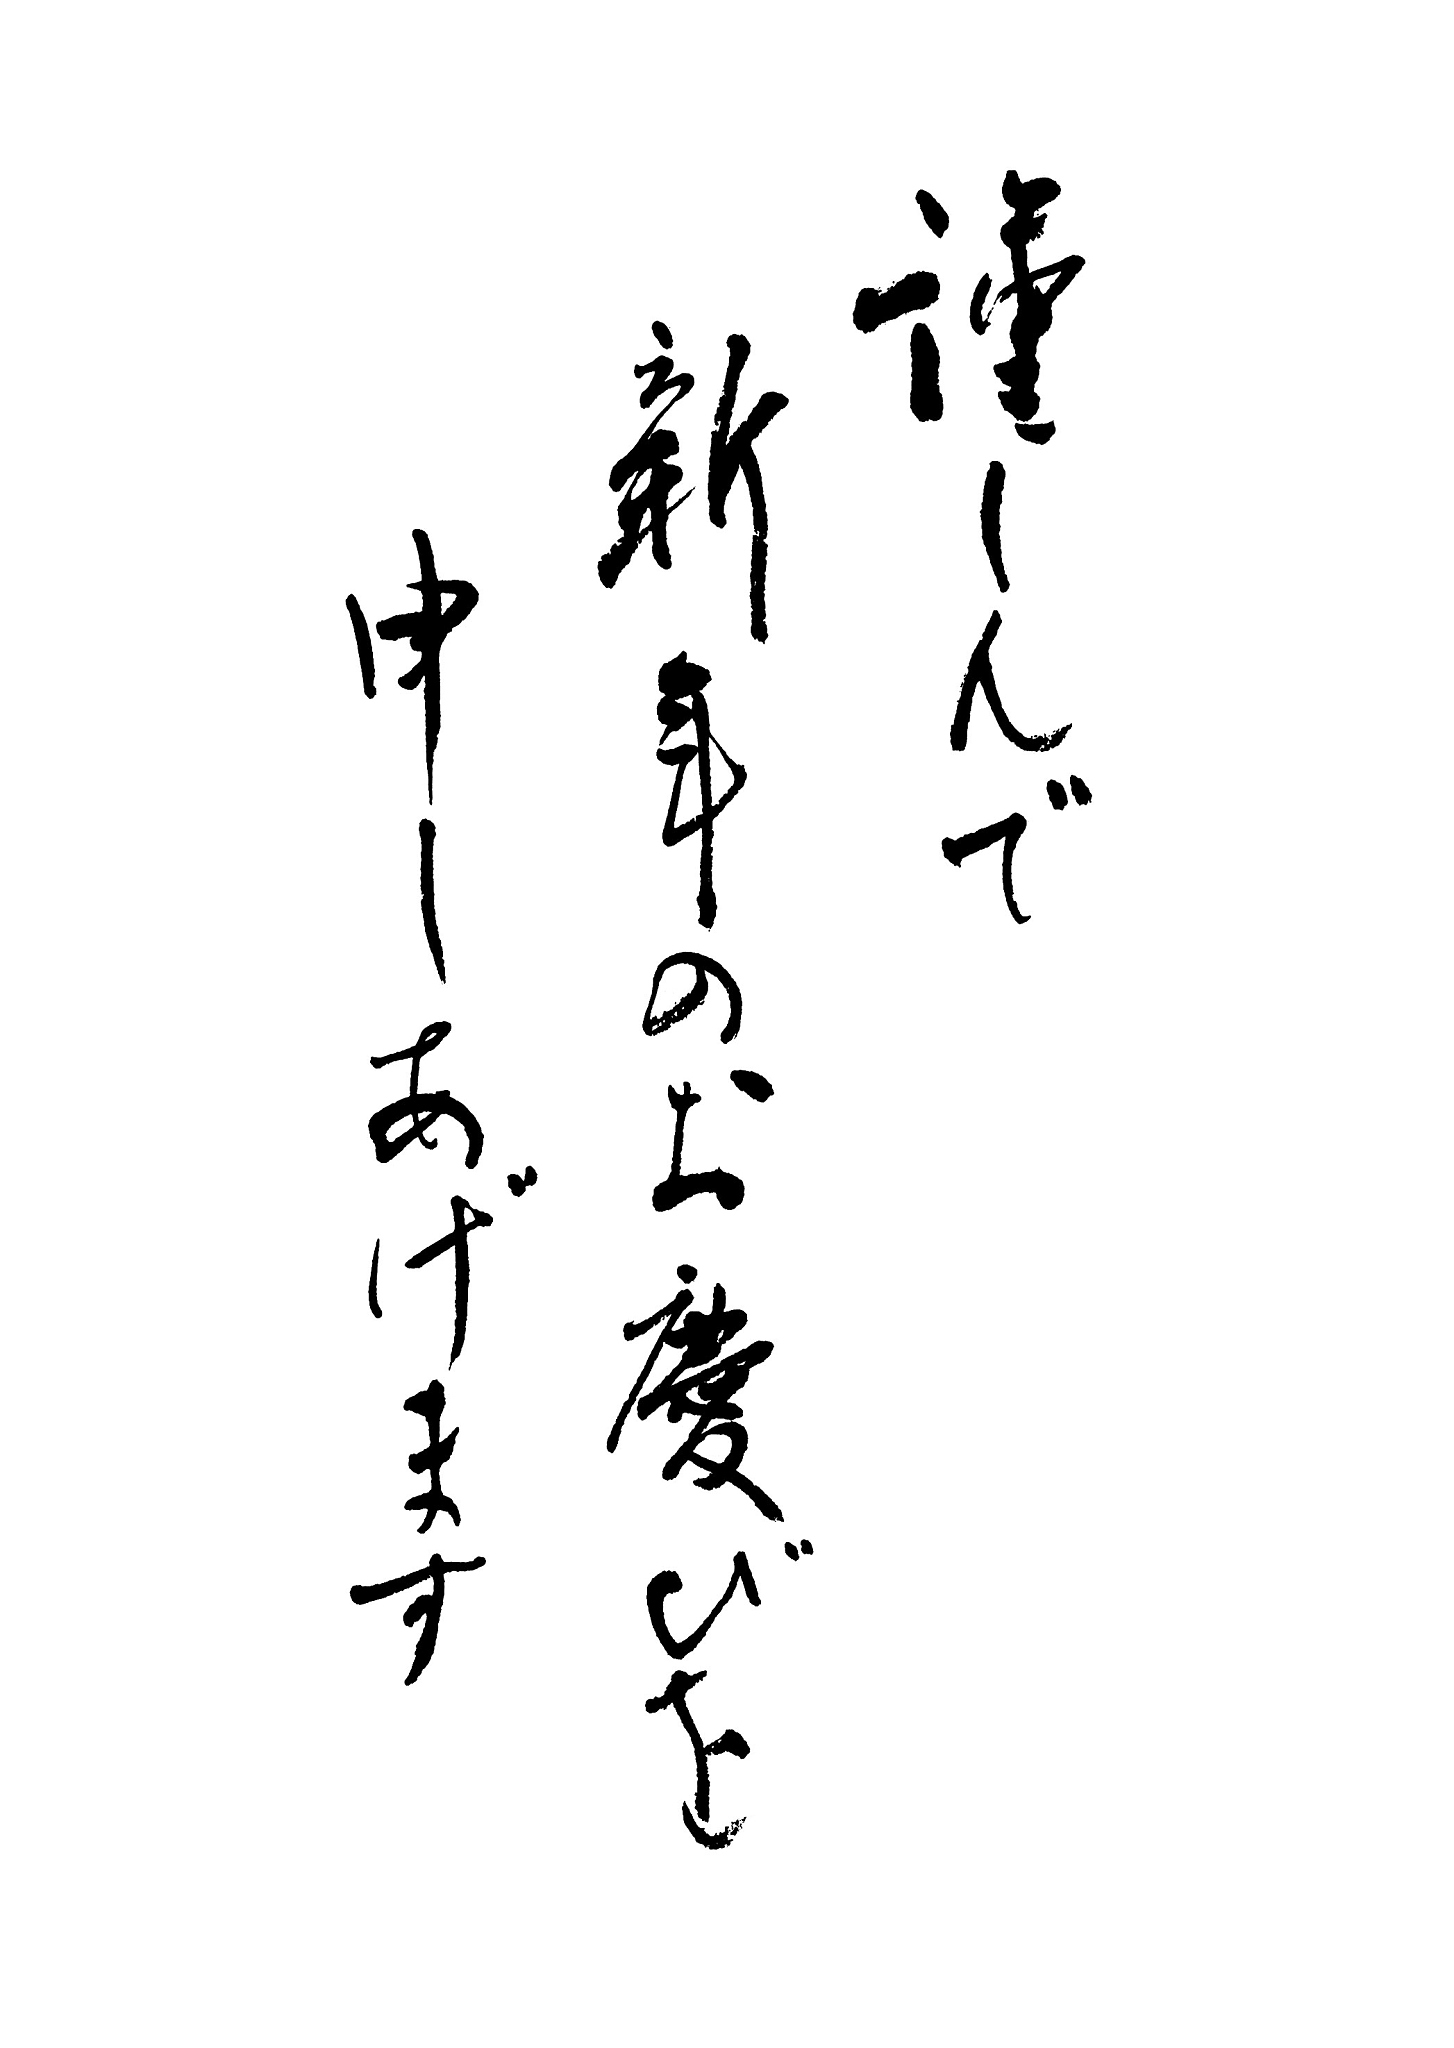 謹しんで
新年のお慶びを
申しあげます